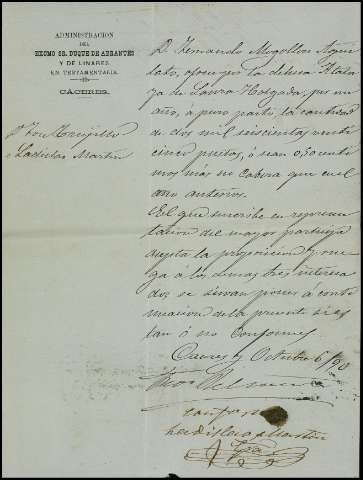 ADMINISTRACION
DEL
EXCMO SR. DUQUE DE ABRANTES
Y DE LINARES.
EN TESTAMENTARIA.
CÁCERES.
Dn José Trujillo
y Ladislao Martin
D. Fernando Mogollon Agu
ofrece por la dehesa Atala
ya de Holgada, por un
año, á puro pasto, la cantidad
de dos mil seiscientas veinte
cinco psetas, ó sean 0,50 centi
mos más no cabeza que en el
año anterior.
El que suscribe en represen
tacion del mayor partícipe
acepta la proposicion y rue
ga á los demas tres interesa
dos se sirvan poner á conti
nuacion de la presente si es
tan ó no conformes.
Caceres y Octubre 6/90
conforme
Ladislao Martin